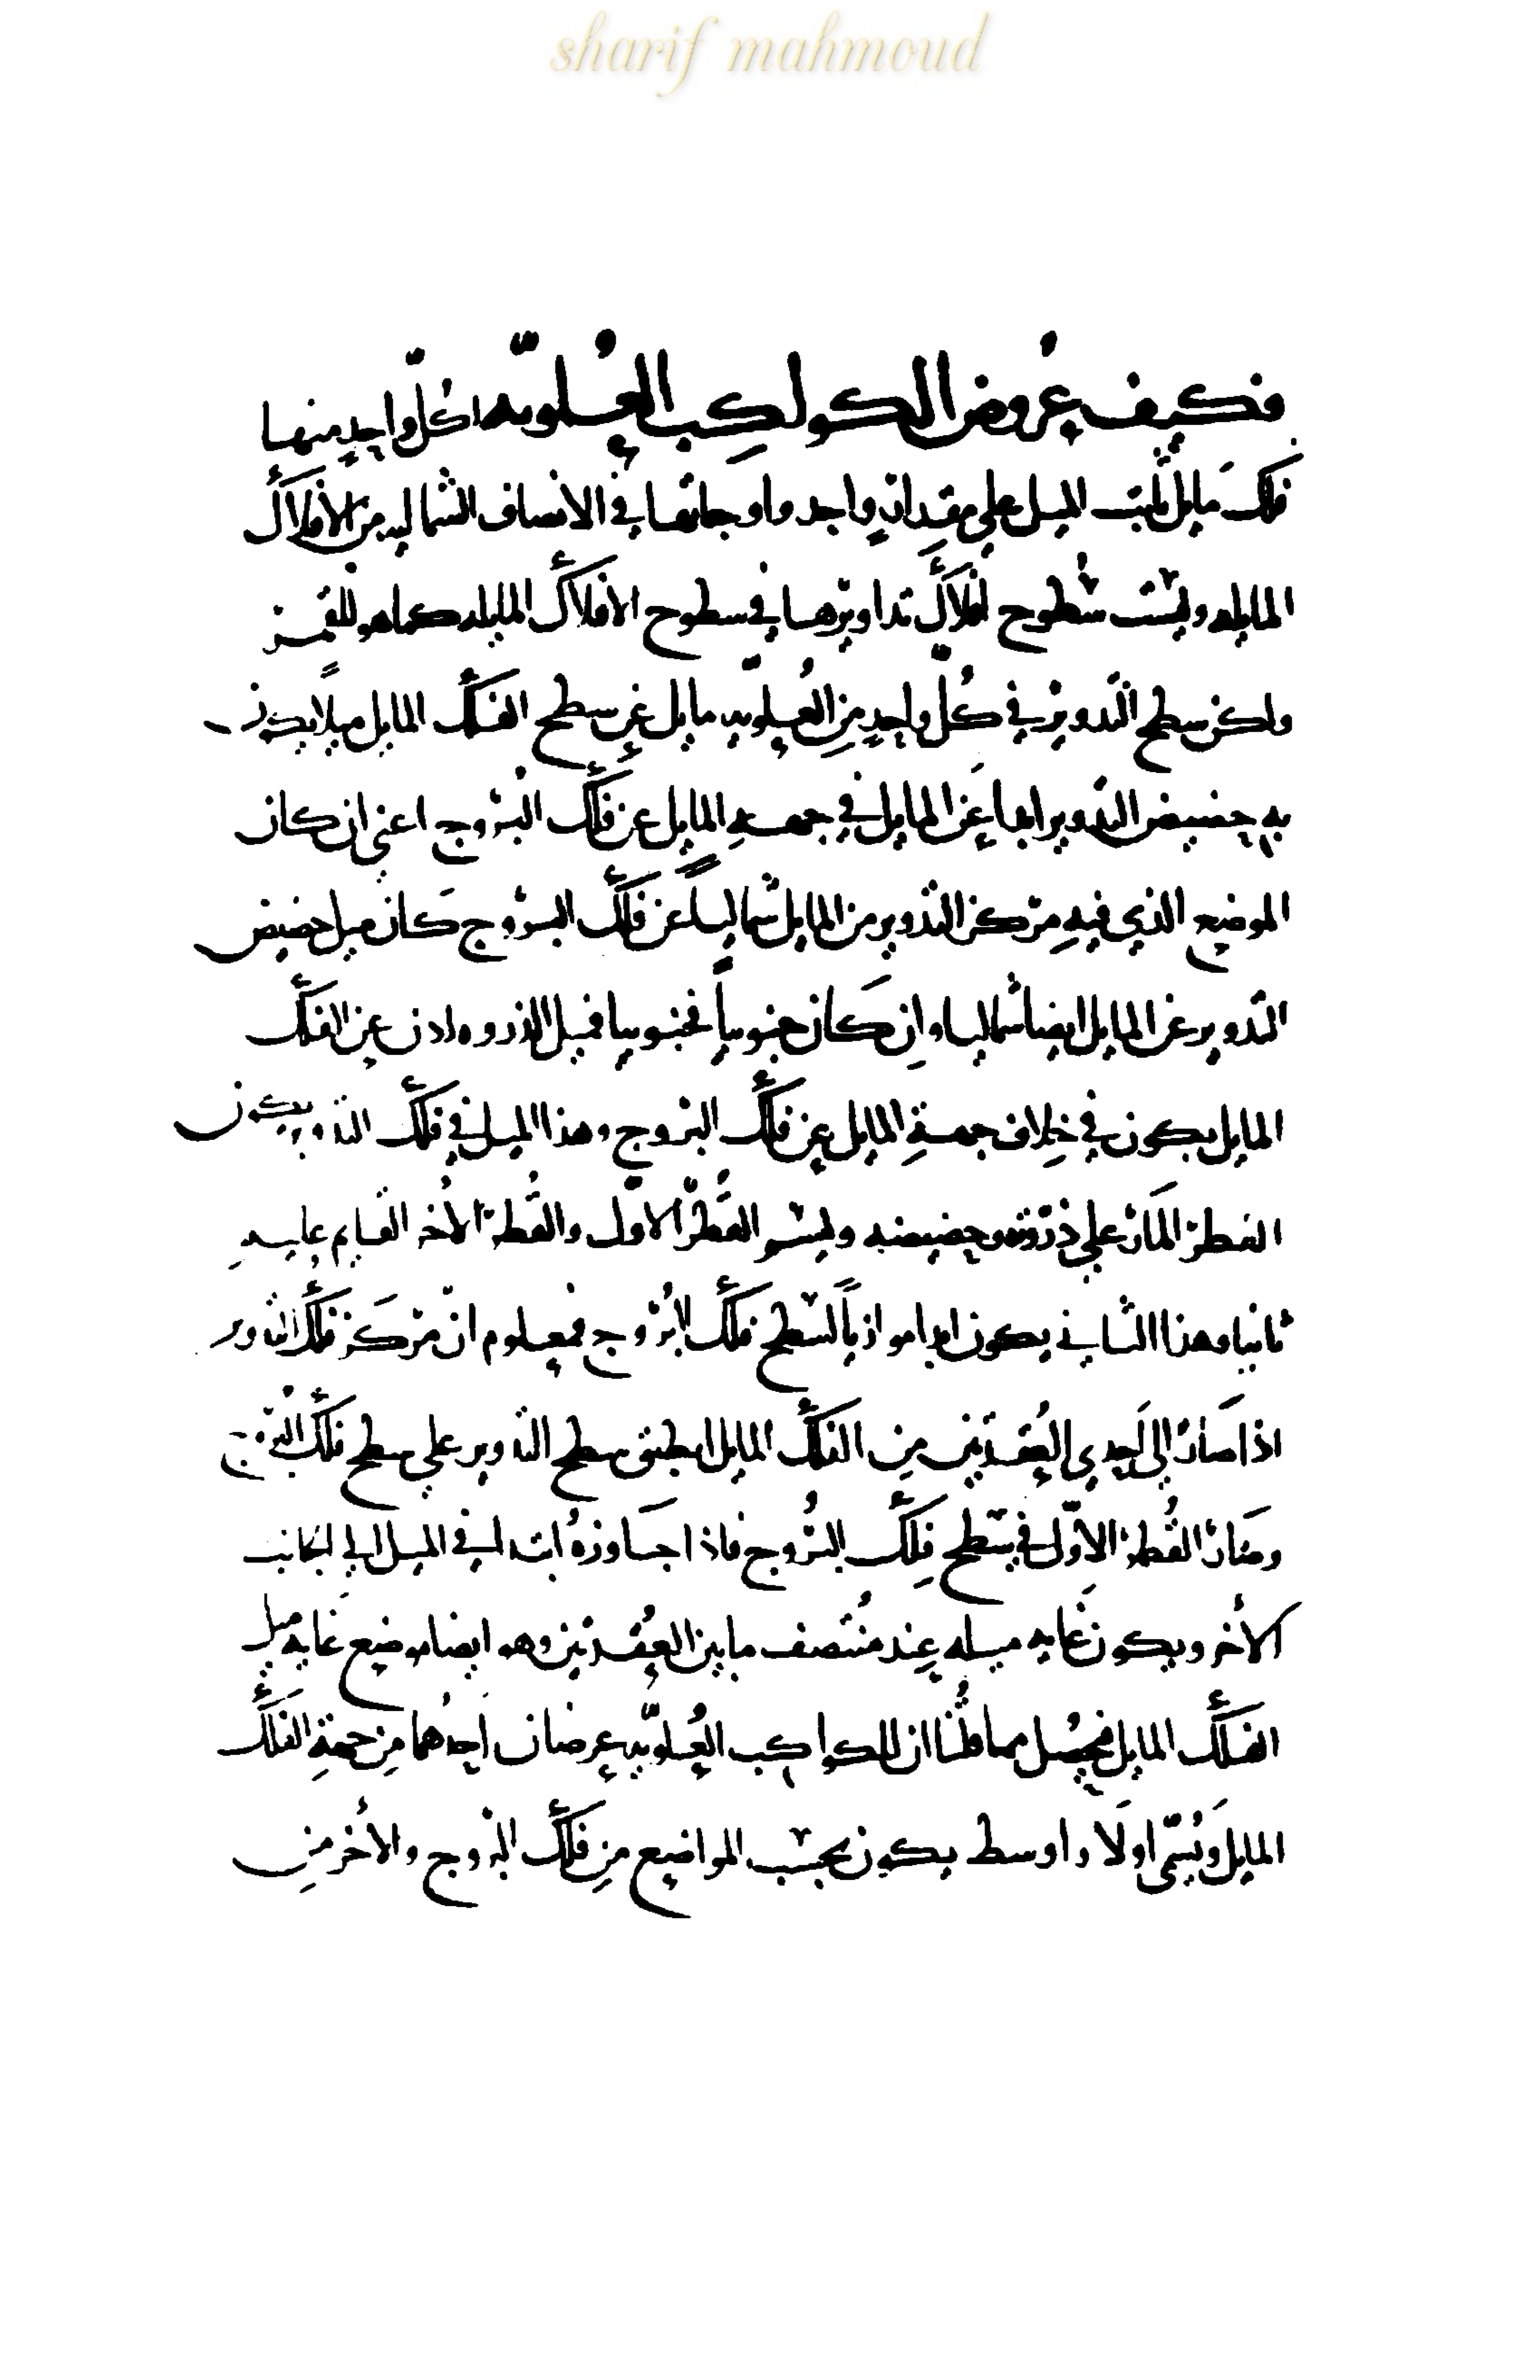 sharif mahmoud
فكيف عُروض الكواكب العُلويّه لكلّ واحدٍ منها
فلك مايل ثابت الميل على مقدارٍ واحد واوجاتها في الانصاف الشماليه من الافلاك
المايله وليست سُطوح افلاك تداويرها في سطوح الافلاك المايله كما هو للقمر
ولكن سطح التّدوير في كُلّ واحدٍ من العُلويّه مايل عن سطح الفلك المايل ميلاً يكون
به حضيض التّدوير ابدا عَن المايل في جهه المايل عن فلك البُروج اعني ان كان
الموضع الذي فيهِ مركز التدوير من المايل شمالياً عن فلك البروج كَان ميل حضيض
التّدوير عن المايل ايضا شماليا وان كَان جنوبياً فجنوبيا فميل الذروه اذن عن الفلك
المايل يكون في خِلاف جهةِ المايل عن فلك البروج وهذا الميل في فلك التدوير يكون
القطر المَار على ذروته وحضيضه وليسم القُطر الاوّل والقُطر الأخر القايم عليهِ
ثانيا وهذا الثاني يكون ابدا موازياً لسَطح فلك البُروج فمعلوم انّ مركَز فلك التدوير
اذا صَار الى احدى العُقدتين مِن الفلك المايل انطبق سطح التدوير على سطح فلك البروج
وصَار القُطر الاوّل في سَطح فلك البُروج فاذا جَاوزهُ ابتدا في الميل الى الجانب
الأخر ويكون غَايه ميله عِند مُنتصف ما بين العُقدتين وهو ايضا موضع غَايه ميل
الفلك المايل فيحصُل مما قُلنا ان للكواكب العُلويّه عرضان احدُهما مِن جهةِ الفلك
المايل وَيُسمّى اولَا واوسط يكون بحسَب المواضع مِن فلك البروج والأخر من